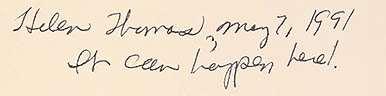 Helen Thomas, May 7, 1991
It can happen here!